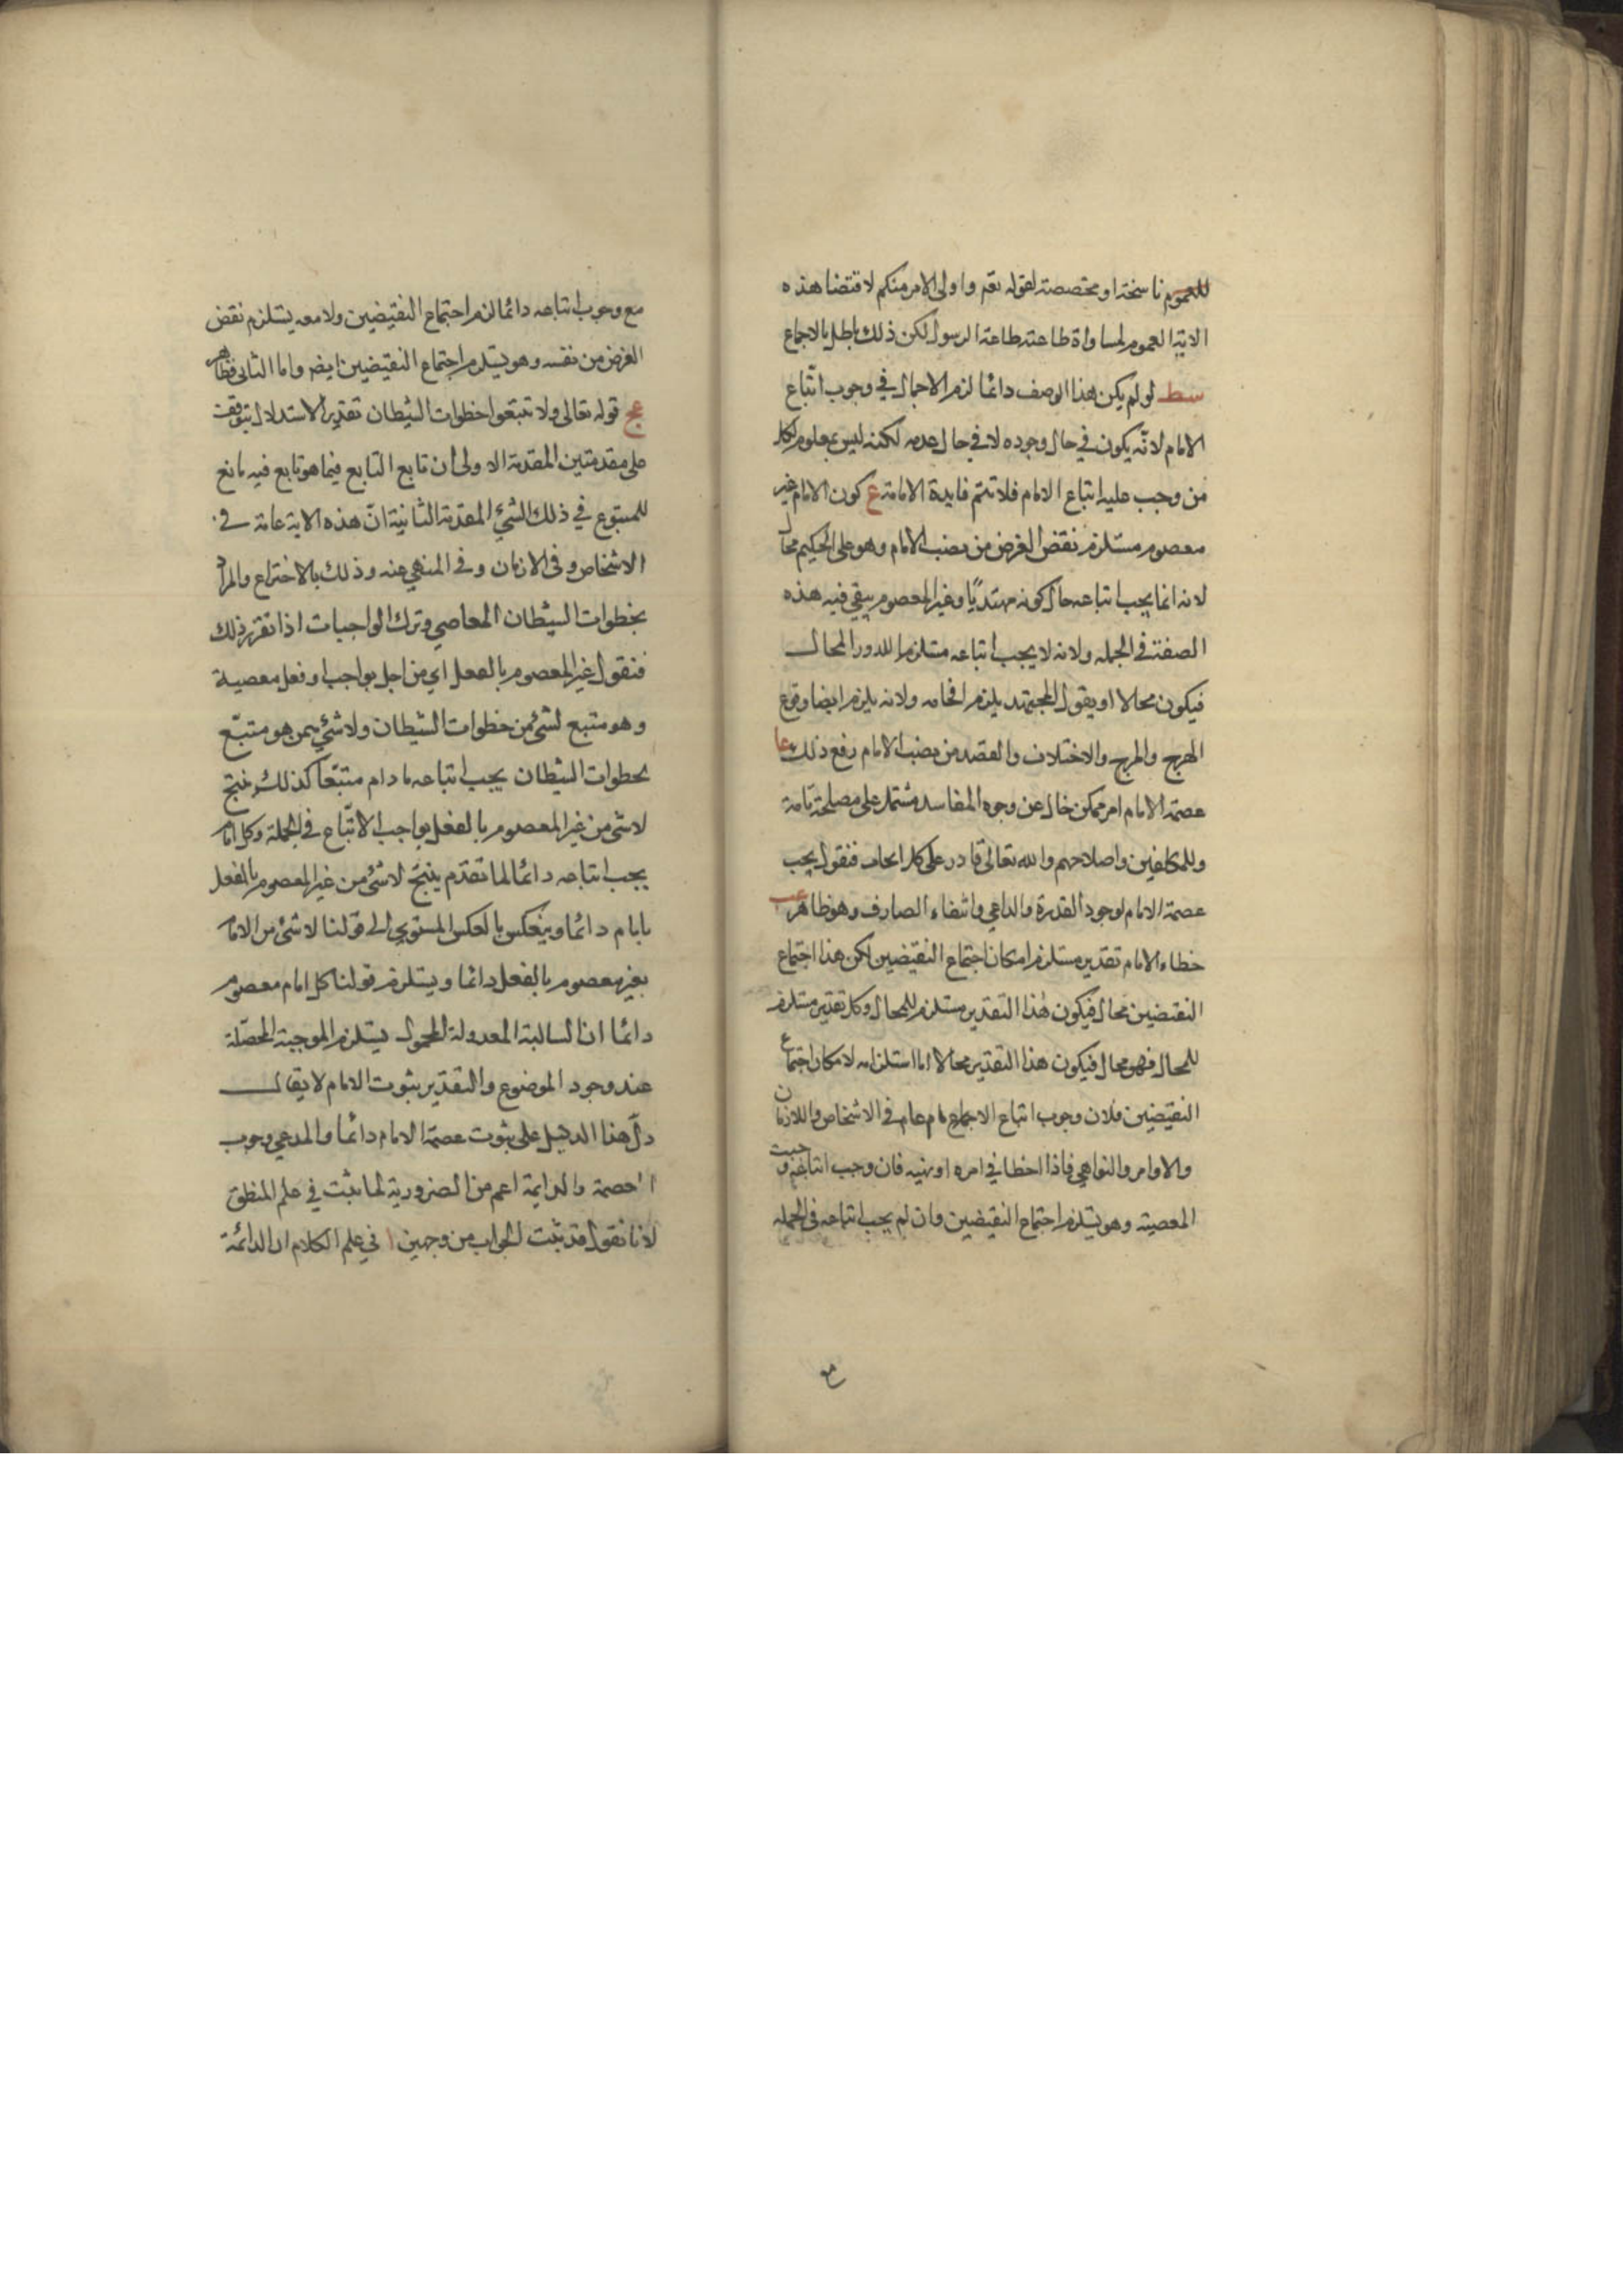 للعموم ناسخة او مخصصة لقوله تعم واولى الامر منكم لاقتضا هذه
الاية العموم لمساواة طاعته طاعة الرسول لكن ذلك باطل بالاجماع
سط لو لم يكن هذا الوصف دائما لزم الاجمال في وجوب اتباع
الامام لانّه يكون في حال وجوده لا في حال عدمه لكنه ليس بمعلوم لكل
من وجب عليه اتباع الامام فلا تتم فايدة الامامة ع كون الامام غير
معصوم مستلزم نقض الغرض من نصب الامام وهو على الحكيم محال
لانه انما يجب اتباعه حال كونه مهتديًا وغير المعصوم يبقي فيه هذه
الصفة في الجمله ولانه لا يجب اتباعه مستلزم للدور المحال
فيكون محالا او يقول المجتهد يلزم افحامه ولانه يلزم ايضا وقوع
الهرج والمرج والاختلاف والقصد من نصب الامام رفع ذلك عا
عصمة الامام امر ممكن خال عن وجوه المفاسد مشتمل على مصلحة تامة
وللمكلفين واصلاحهم والله تعالى قادر على كل فنقول يجب
عصمة الامام لوجود القدرة والداعي وانتفاء الصارف وهو ظاهر عب
خطاء الامام تقدير مستلزم امكان اجتماع النقيضين لكن هذا اجتماع
النقيضين محال فيكون هذا التقدير مستلزم للمحال وكل تقدير مستلزم
للمحال فهو محال فيكون هذا التقدير محالا اما استلزامه لامكان اجتماع
النقيضين فلان وجوب اتباع الامام عام في الاشخاص واللازمان
والاوامر والنواهي فاذا اخطا في امره او نهيه فان وجب اتباعه وجبت
المعصية وهو يستلزم اجتماع النقيضين وان لم يجب اتباعه في الجمله
مع
مع وجوب اتباعه دائما لزم اجتماع النقيضين ولا معه يستلزم نقض
الغرض من نفسه وهو يستلزم اجتماع النقيضين ايضه واما الثاني فظاهر
عج قوله تعالى ولا تتبعوا خطوات الشيطان تقدير الاستدلال يتوقف
على مقدمتين المقدمة الاولى ان تابع التابع فيما هو تابع فيه تابع
للمتبوع في ذلك الشئ المقدمة الثانية انّ هذه الاية عامة في
الاشخاص وفي الازمان وفي المنهي عنه وذلك بالاختراع والمراد
بخطوات الشيطان المعاصي وترك الواجبات اذا تقرر ذلك
فنقول غير المعصوم بالفعل اي من اخل بواجب او فعل معصية
وهو متبع لشئ من خطوات الشيطان ولا شئ ممن هو متبّع
لخطوات الشيطان يجب اتباعه ما دام متبّعا كذلك ينتج
لا شئ من غير المعصوم بالفعل بواجب الاتّباع في الجملة وكل امام
يجب اتباعه دائما لما تقدم ينتج لا شئ من غير المعصوم بالفعل
بامام دائما وينعكس بالعكس المستوي الى قولنا لا شئ من الامام
بغير معصوم بالفعل دائما ويستلزم قولنا كل امام معصوم
دائما اذ السالبة المعدولة المحمول يستلزم الموجبة المحصّلة
عند وجود الموضوع والتقدير ثبوت الامام لا يقال
دلّ هذا الدليل على ثبوت عصمة الامام دائما والمدعي وجوب
العصمة والدايمة اعم من الضرورية لما ثبت في علم المنطق
لانا نقول قد ثبت الجواب من وجهين ا في علم الكلام ان الدائمة